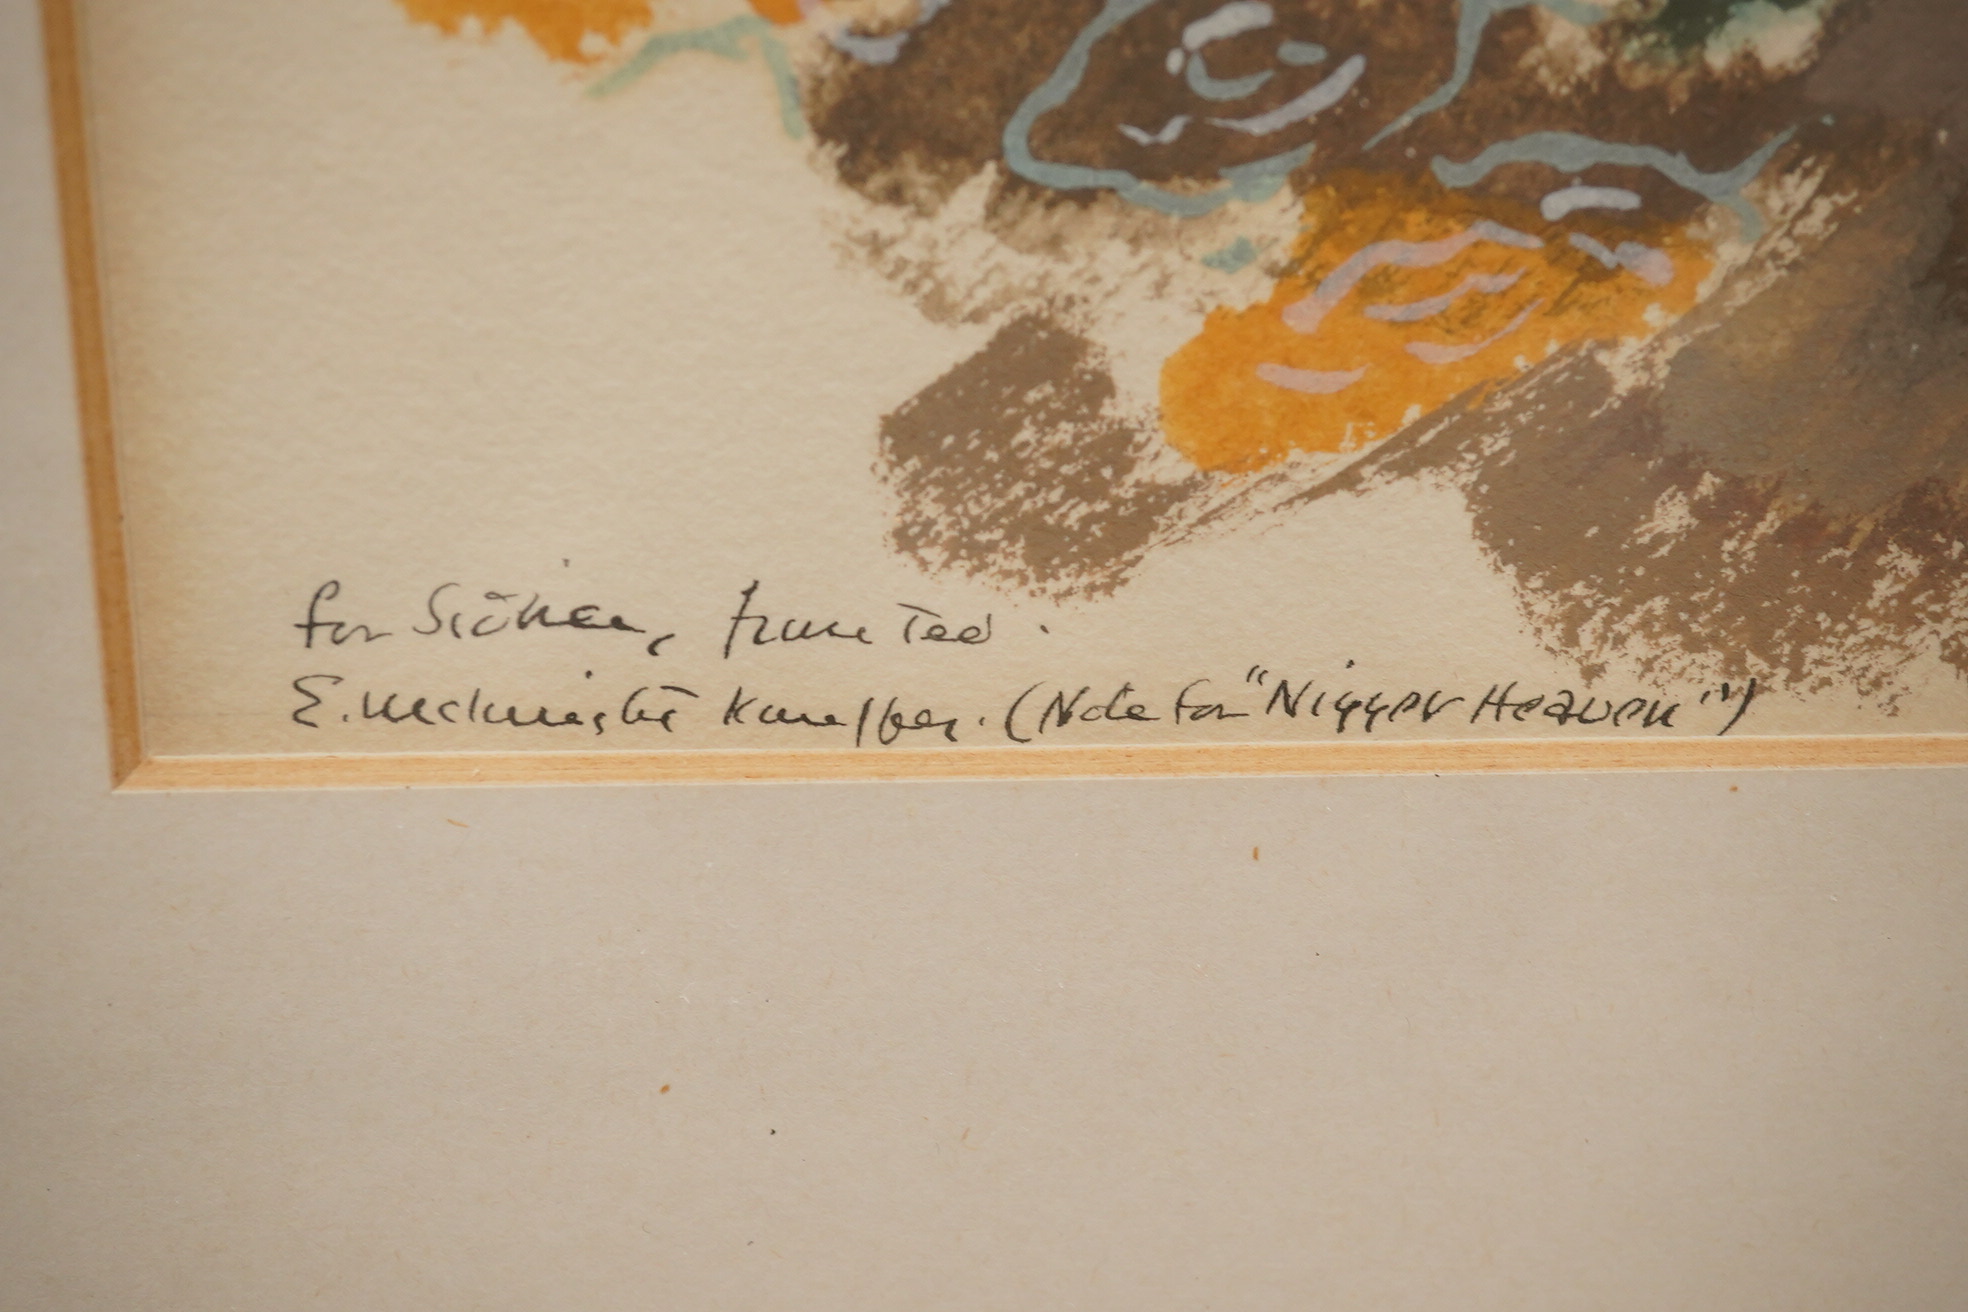 for Siöhan, from Ted.
E. McKnight Kauffer. (Note for "Nigger Heaven")